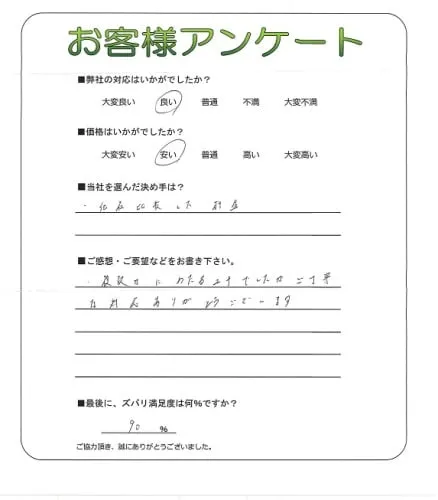 お客様アンケート
■弊社の対応はいかがでしたか？
大変良い 良い 普通 不満 大変不満
■価格はいかがでしたか？
大変安い 安い 普通 高い 大変高い
■当社を選んだ決め手は？
・他店比較した 料金
■ご感想・ご要望などをお書き下さい。
にわたる までしたがご丁寧
な対応ありがとうございます
■最後に、ズバリ満足度は何%ですか？
90 %
ご協力頂き、誠にありがとうございました。